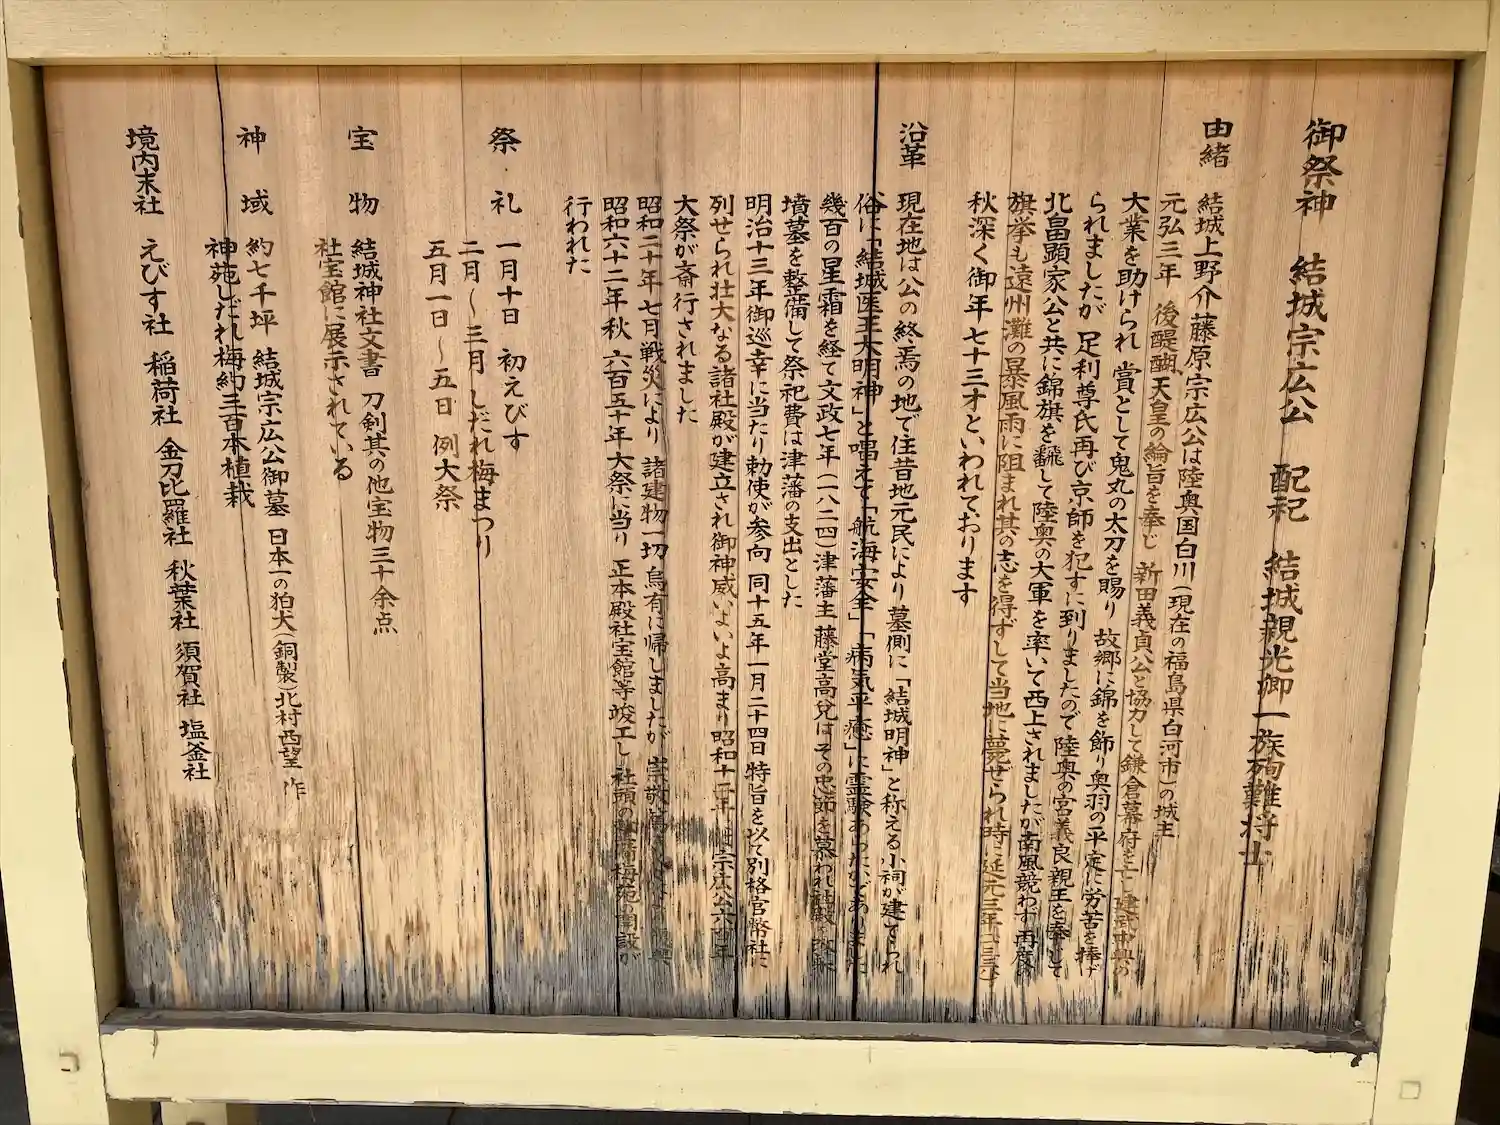 御祭神 結城宗広公 配祀 結城親光卿一族殉難将士
由緒 結城上野介藤原宗広公は陸奥国白川(現在の福島県白河市)の城主
元弘三年 後醍醐天皇の綸旨を奉じ 新田義貞公と協力して鎌倉幕府を亡し建武中興の
大業を助けられ 賞として鬼丸の太刀を賜り 故郷に錦を飾り奥羽の平定に労苦を捧げ
られましたが 足利尊氏再び京師を犯すに到りましたので 陸奥の宮義良親王を奉じて
北畠顕家公と共に錦旗を飜して陸奥の大軍を率いて西上されましたが南風競わず 再度の
旗挙も遠州灘の暴風雨に阻まれ其の志を得ずして当地に薨ぜられ時に延元三年
秋深く御年七十三才といわれております
沿革 現在地は公の終焉の地で往昔地元民により 墓側に「結城明神」と称える小祠が建てられ
俗に「結城医王大明神」と唱えて「航海安全」「病気平癒」に霊験あらたかでありました
幾百の星霜を経て文政七年(一八二四)津藩主 藤堂高兌はその忠節を慕われ社殿を改築
墳墓を整備して祭祀費は津藩の支出とした
明治十三年御巡幸に当たり 勅使が参向 同十五年一月二十四日特旨を以て別格官幣社に
列せられ壮大なる諸社殿が建立され御神威いよいよ高まり昭和十二年には宗広公六百年
大祭が斎行されました
昭和二十年七月戦災により 諸建物一切 烏有に帰しましたが 崇敬篤
昭和六十二年秋 六百五十年大祭に当り 正本殿社宝館等竣工し 社頭の 梅苑の開設が
行われた
祭礼 一月十日 初えびす
二月〜三月 しだれ梅まつり
五月一日〜五日 例大祭
宝物 結城神社文書 刀剣其の他宝物三十余点
社宝館に展示されている
神域 約七千坪 結城宗広公御墓 日本一の狛犬(銅製)北村西望 作
神苑しだれ梅約三百本植栽
境内末社 えびす社 稲荷社 金刀比羅社 秋葉社 須賀社 塩釜社